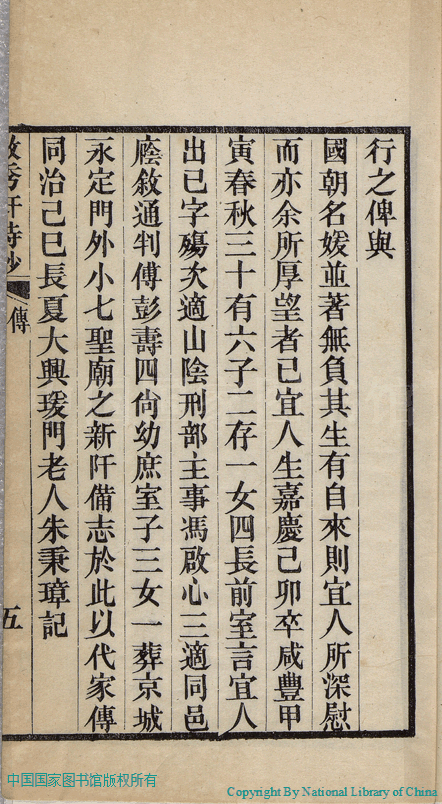 行之俾與
國朝名媛並著無負其生有自來則宜人所深慰
而亦余所厚望者已宜人生嘉慶己卯卒咸豐甲
寅春秋三十有六子二存一女四長前室言宜人
出已字殤次適山陰刑部主事馮啟心三適同邑
廕敘通判傅彭壽四尙幼庶室子三女一葬京城
永定門外小七聖廟之新阡備志於此以代家傳
同治己巳長夏大興瑗門老人朱秉璋記
傳
五
中国国家图书馆版权所有
Copyright By National Library of China